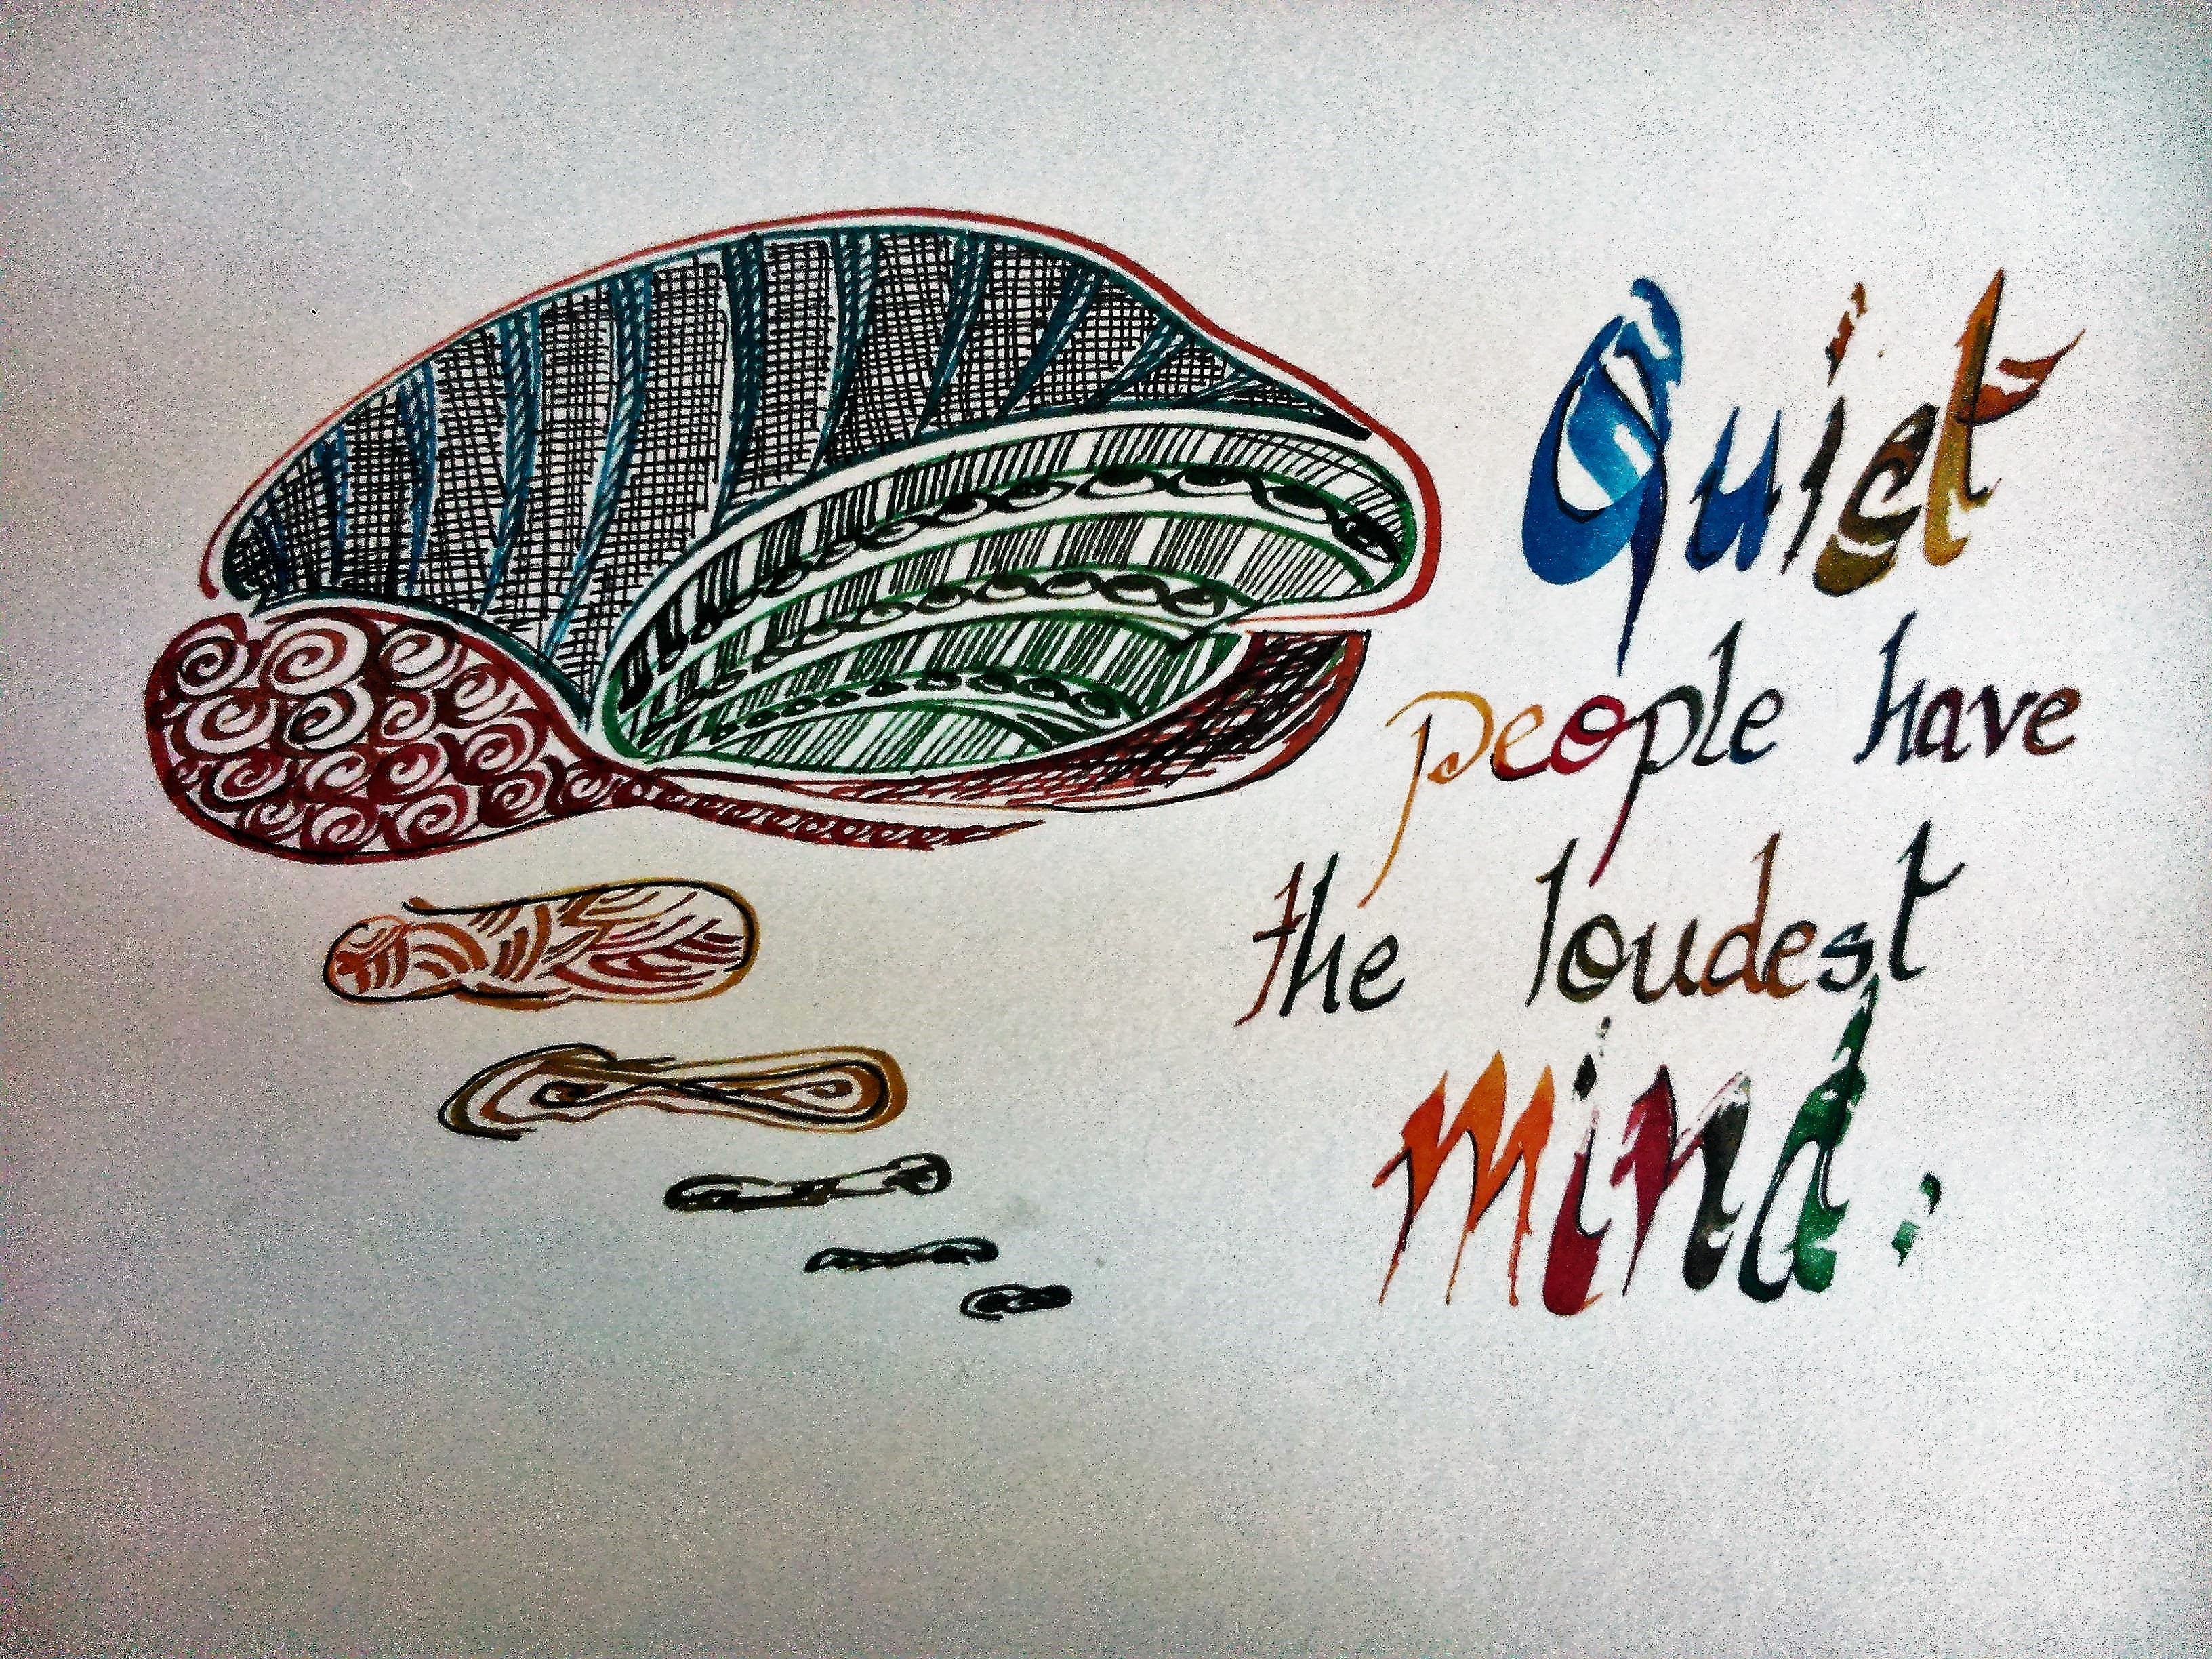 Quiet
people have
the loudest
mind.